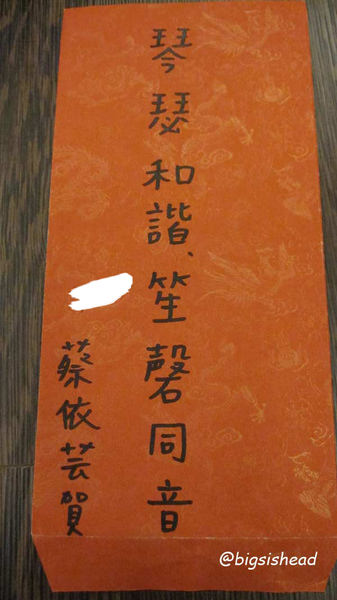 琴瑟和諧、笙磬同音
蔡依芸賀
@bigsishead